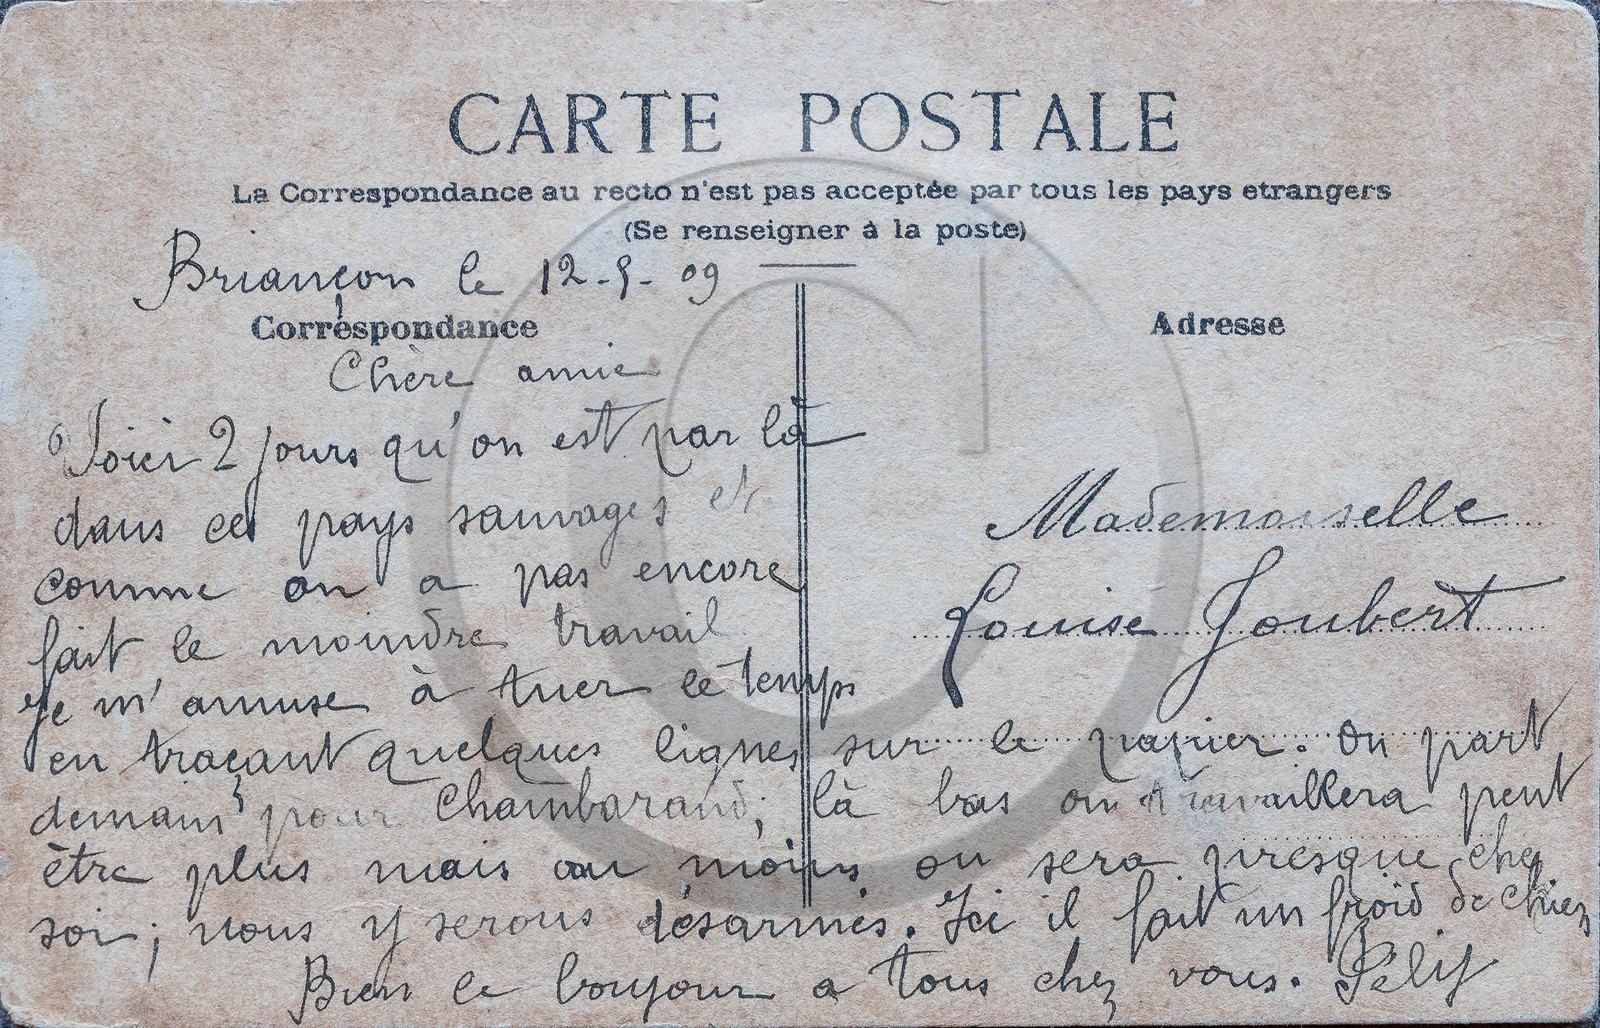 CARTE POSTALE
La Correspondance au recto n'est pas acceptée par tous les pays etrangers
(Se renseigner à la poste)
Briançon le 12-5-09
Correspondance
Adresse
Chère amie
Voici 2 jours qu'on est par là
dans ces pays sauvages et
comme on a pas encore
fait le moindre travail
je m'amuse à tuer le temps
en traçant quelques lignes sur le papier. On part
demain pour Chambarand; là bas on travaillera peut
être plus mais au moins on sera presque chez
soi; nous y serons désarmés. Ici il fait un froid de chien
Bien le bonjour a tous chez vous.
Mademoiselle
Louise Joubert